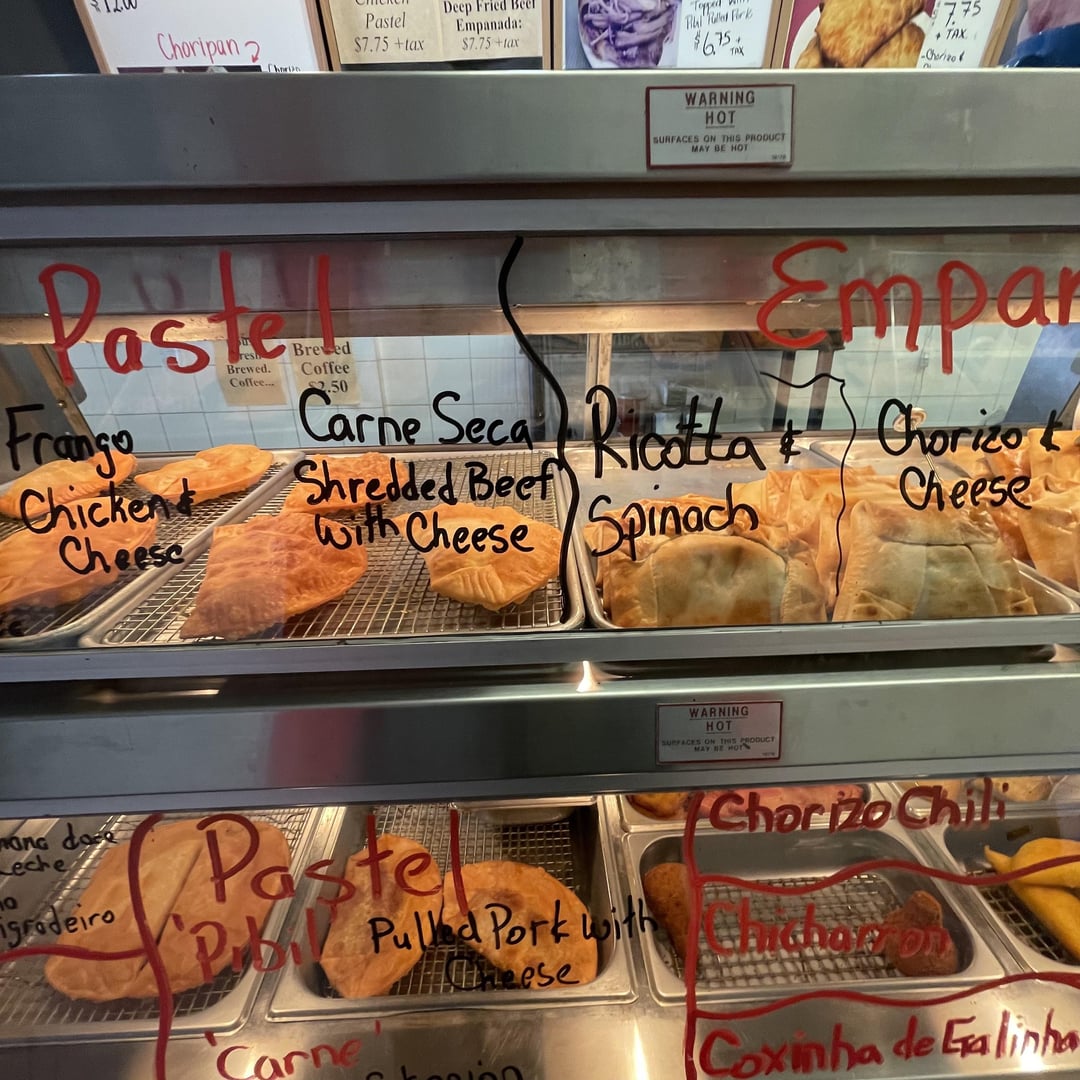 $12.00
Choripan
Chorizo
Chicken
Pastel
$7.75 +tax
Deep Fried Beef
Empanada:
$7.75 +tax
Topped with
Pibil Pulled Pork
$6.75 +
TAX
7.75
+ TAX
-Chorizo &
WARNING
HOT
SURFACES ON THIS PRODUCT
MAY BE HOT
Pastel
Empan
Brewed.
Coffee...
Brewed
Coffee
$2.50
Frango
Chicken &
Cheese
Carne Seca
Shredded Beef
with Cheese
Ricotta &
Spinach
Chorizo &
Cheese
WARNING
HOT
SURFACES ON THIS PRODUCT
MAY BE HOT
Leche
Pastel
'Pibil'
Pulled Pork with
Cheese
'Carne'
Chorizo Chili
Chicharron
Coxinha de Galinha